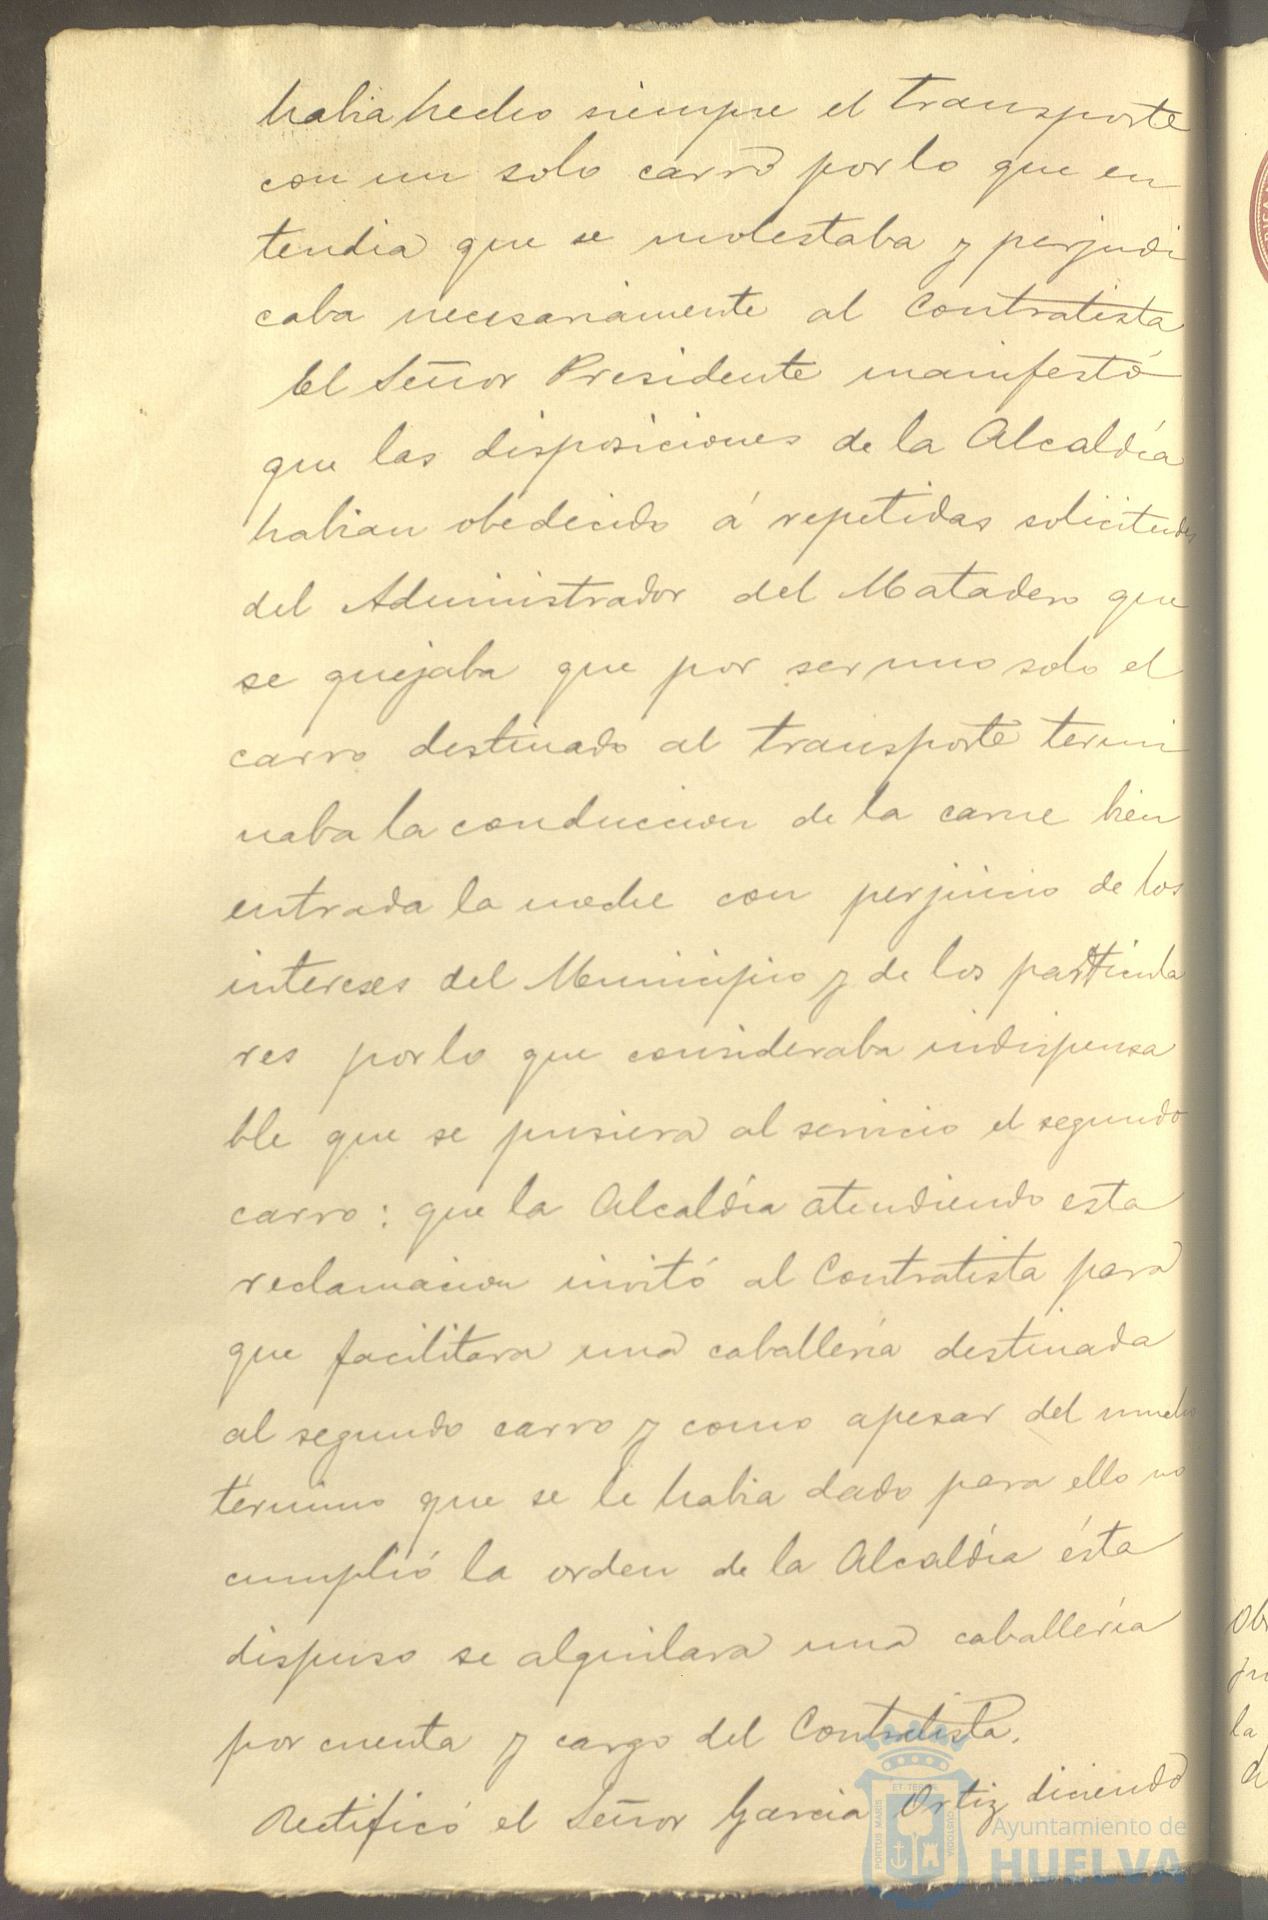 habia hecho siempre el transporte
con un solo carro por lo que en
tendia que se molestaba y perjudi
caba necesariamente al Contratista
El Señor Presidente manifestó
que las disposiciones de la Alcaldía
habian obedecido á repetidas solicitudes
del Administrador del Matadero que
se quejaba que por ser uno solo el
carro destinado al transporte termi
naba la conduccion de la carne bien
entrada la noche con perjuicio de los
intereses del Municipio y de los particula
res por lo que consideraba indispensa
ble que se pusiera al servicio el segundo
carro: que la Alcaldía atendiendo esta
reclamacion invitó al Contratista para
que facilitara una caballería destinada
al segundo carro y como apesar del mucho
término que se le habia dado para ello no
cumplió la orden de la Alcaldía ésta
dispuso se alquilara una caballería
por cuenta y cargo del Contratista.
Rectificó el Señor Garcia Ortiz diciendo
Ayuntamiento de
HUELVA
PORTUS MARIS
ET TERRAE
CUSTODIA
la